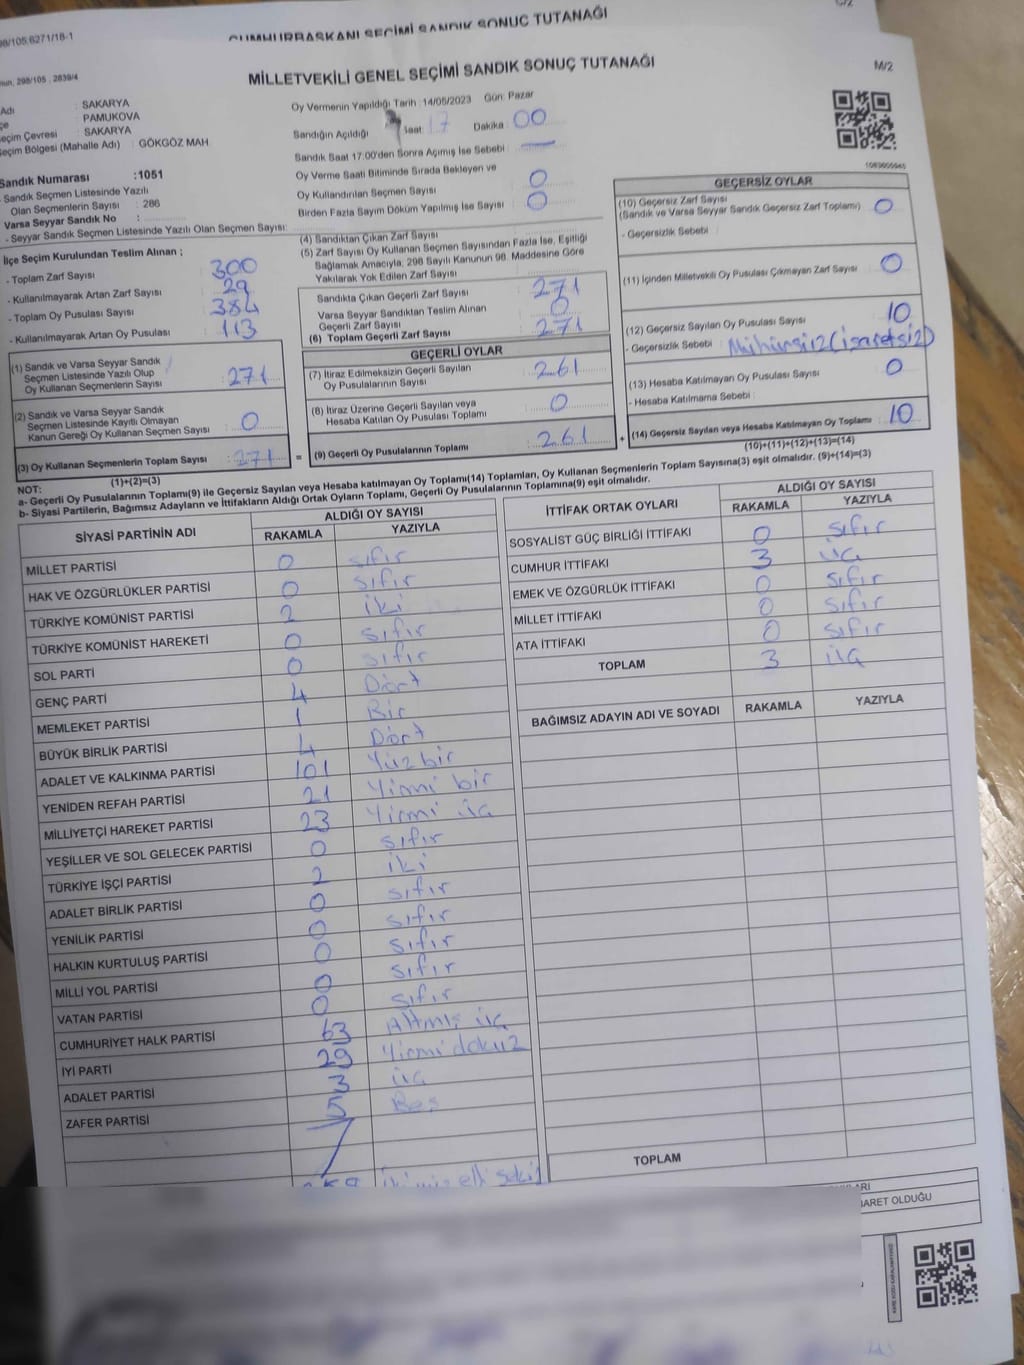 98/105:6271/18-1
CUMHURBAŞKANI SEÇİMİ SANDIK SONUÇ TUTANAĞI
C/2
298/105 : 2839/4
MİLLETVEKİLİ GENEL SEÇİMİ SANDIK SONUÇ TUTANAĞI
M/2
Adı : SAKARYA
PAMUKOVA
Seçim Çevresi : SAKARYA
Seçim Bölgesi (Mahalle Adı) : GÖKGÖZ MAH
Oy Vermenin Yapıldığı Tarih : 14/05/2023 Gün: Pazar
Sandığın Açıldığı Saat 17 Dakika : 00
Sandık Saat 17:00'den Sonra Açmış İse Sebebi :
Oy Verme Saati Bitiminde Sırada Bekleyen ve
Oy Kullandırılan Seçmen Sayısı : 0
Birden Fazla Sayım Döküm Yapılmış İse Sayısı : 0
Sandık Numarası :1051
- Sandık Seçmen Listesinde Yazılı
Olan Seçmenlerin Sayısı : 286
Varsa Seyyar Sandık No :
- Seyyar Sandık Seçmen Listesinde Yazılı Olan Seçmen Sayısı:
İlçe Seçim Kurulundan Teslim Alınan ;
- Toplam Zarf Sayısı 300
- Kullanılmayarak Artan Zarf Sayısı 29
- Toplam Oy Pusulası Sayısı 384
- Kullanılmayarak Artan Oy Pusulası 113
(1) Sandık ve Varsa Seyyar Sandık
Seçmen Listesinde Yazılı Olup
Oy Kullanan Seçmenlerin Sayısı : 271
(2) Sandık ve Varsa Seyyar Sandık
Seçmen Listesinde Kayıtlı Olmayan
Kanun Gereği Oy Kullanan Seçmen Sayısı : 0
(3) Oy Kullanan Seçmenlerin Toplam Sayısı : 271
(1)+(2)=(3)
(4) Sandıktan Çıkan Zarf Sayısı
(5) Zarf Sayısı Oy Kullanan Seçmen Sayısından Fazla İse, Eşitliği
Sağlamak Amacıyla, 298 Sayılı Kanunun 98. Maddesine Göre
Yakılarak Yok Edilen Zarf Sayısı
Sandıkta Çıkan Geçerli Zarf Sayısı : 271
Varsa Seyyar Sandıktan Teslim Alınan
Geçerli Zarf Sayısı : 0
(6) Toplam Geçerli Zarf Sayısı : 271
GEÇERLİ OYLAR
(7) İtiraz Edilmeksizin Geçerli Sayılan
Oy Pusulalarının Sayısı : 261
(8) İtiraz Üzerine Geçerli Sayılan veya
Hesaba Katılan Oy Pusulası Toplamı : 0
= (9) Geçerli Oy Pusulalarının Toplamı : 261
1083600045
GEÇERSİZ OYLAR
(10) Geçersiz Zarf Sayısı
(Sandık ve Varsa Seyyar Sandık Geçersiz Zarf Toplamı) : 0
- Geçersizlik Sebebi :
(11) İçinden Milletvekili Oy Pusulası Çıkmayan Zarf Sayısı : 0
(12) Geçersiz Sayılan Oy Pusulası Sayısı : 10
- Geçersizlik Sebebi : Mühürsüz (işaretsiz)
(13) Hesaba Katılmayan Oy Pusulası Sayısı : 0
- Hesaba Katılmama Sebebi :
+ (14) Geçersiz Sayılan veya Hesaba Katılmayan Oy Toplamı : 10
(10)+(11)+(12)+(13)=(14)
NOT:
a- Geçerli Oy Pusulalarının Toplamı(9) ile Geçersiz Sayılan veya Hesaba katılmayan Oy Toplamı(14) Toplamları, Oy Kullanan Seçmenlerin Toplam Sayısına(3) eşit olmalıdır. (9)+(14)=(3)
b- Siyasi Partilerin, Bağımsız Adayların ve İttifakların Aldığı Ortak Oyların Toplamı, Geçerli Oy Pusulalarının Toplamına(9) eşit olmalıdır.
SİYASİ PARTİNİN ADI ALDIĞI OY SAYISI
RAKAMLA YAZIYLA
MİLLET PARTİSİ 0 sıfır
HAK VE ÖZGÜRLÜKLER PARTİSİ 0 sıfır
TÜRKİYE KOMÜNİST PARTİSİ 2 iki
TÜRKİYE KOMÜNİST HAREKETİ 0 sıfır
SOL PARTİ 0 sıfır
GENÇ PARTİ 4 Dört
MEMLEKET PARTİSİ 1 Bir
BÜYÜK BİRLİK PARTİSİ 4 Dört
ADALET VE KALKINMA PARTİSİ 101 Yüz bir
YENİDEN REFAH PARTİSİ 21 Yirmi bir
MİLLİYETÇİ HAREKET PARTİSİ 23 Yirmi üç
YEŞİLLER VE SOL GELECEK PARTİSİ 0 sıfır
TÜRKİYE İŞÇİ PARTİSİ 2 iki
ADALET BİRLİK PARTİSİ 0 sıfır
YENİLİK PARTİSİ 0 sıfır
HALKIN KURTULUŞ PARTİSİ 0 sıfır
MİLLİ YOL PARTİSİ 0 sıfır
VATAN PARTİSİ 0 sıfır
CUMHURİYET HALK PARTİSİ 63 Altmış üç
İYİ PARTİ 29 Yirmi dokuz
ADALET PARTİSİ 3 üç
ZAFER PARTİSİ 5 Beş
258 iki yüz elli sekiz
İTTİFAK ORTAK OYLARI ALDIĞI OY SAYISI
RAKAMLA YAZIYLA
SOSYALİST GÜÇ BİRLİĞİ İTTİFAKI 0 sıfır
CUMHUR İTTİFAKI 3 üç
EMEK VE ÖZGÜRLÜK İTTİFAKI 0 sıfır
MİLLET İTTİFAKI 0 sıfır
ATA İTTİFAKI 0 sıfır
TOPLAM 3 üç
BAĞIMSIZ ADAYIN ADI VE SOYADI RAKAMLA YAZIYLA
TOPLAM
İŞARET OLDUĞU